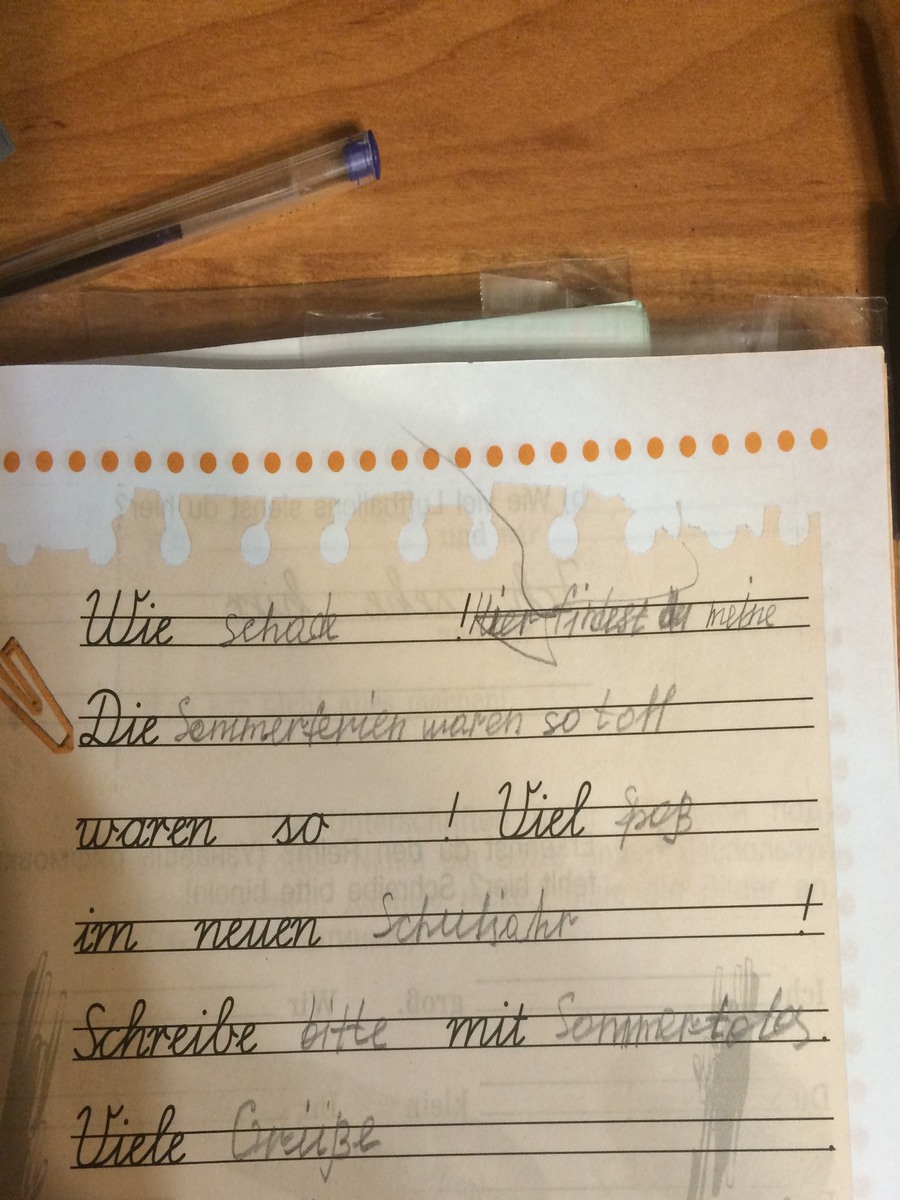 Wie schade !Hier findest du meine
Die Sommerferien waren so toll
waren so ! Viel Spaß
im neuen Schuljahr !
Schreibe bitte mit Sommerfotos.
Viele Grüße .